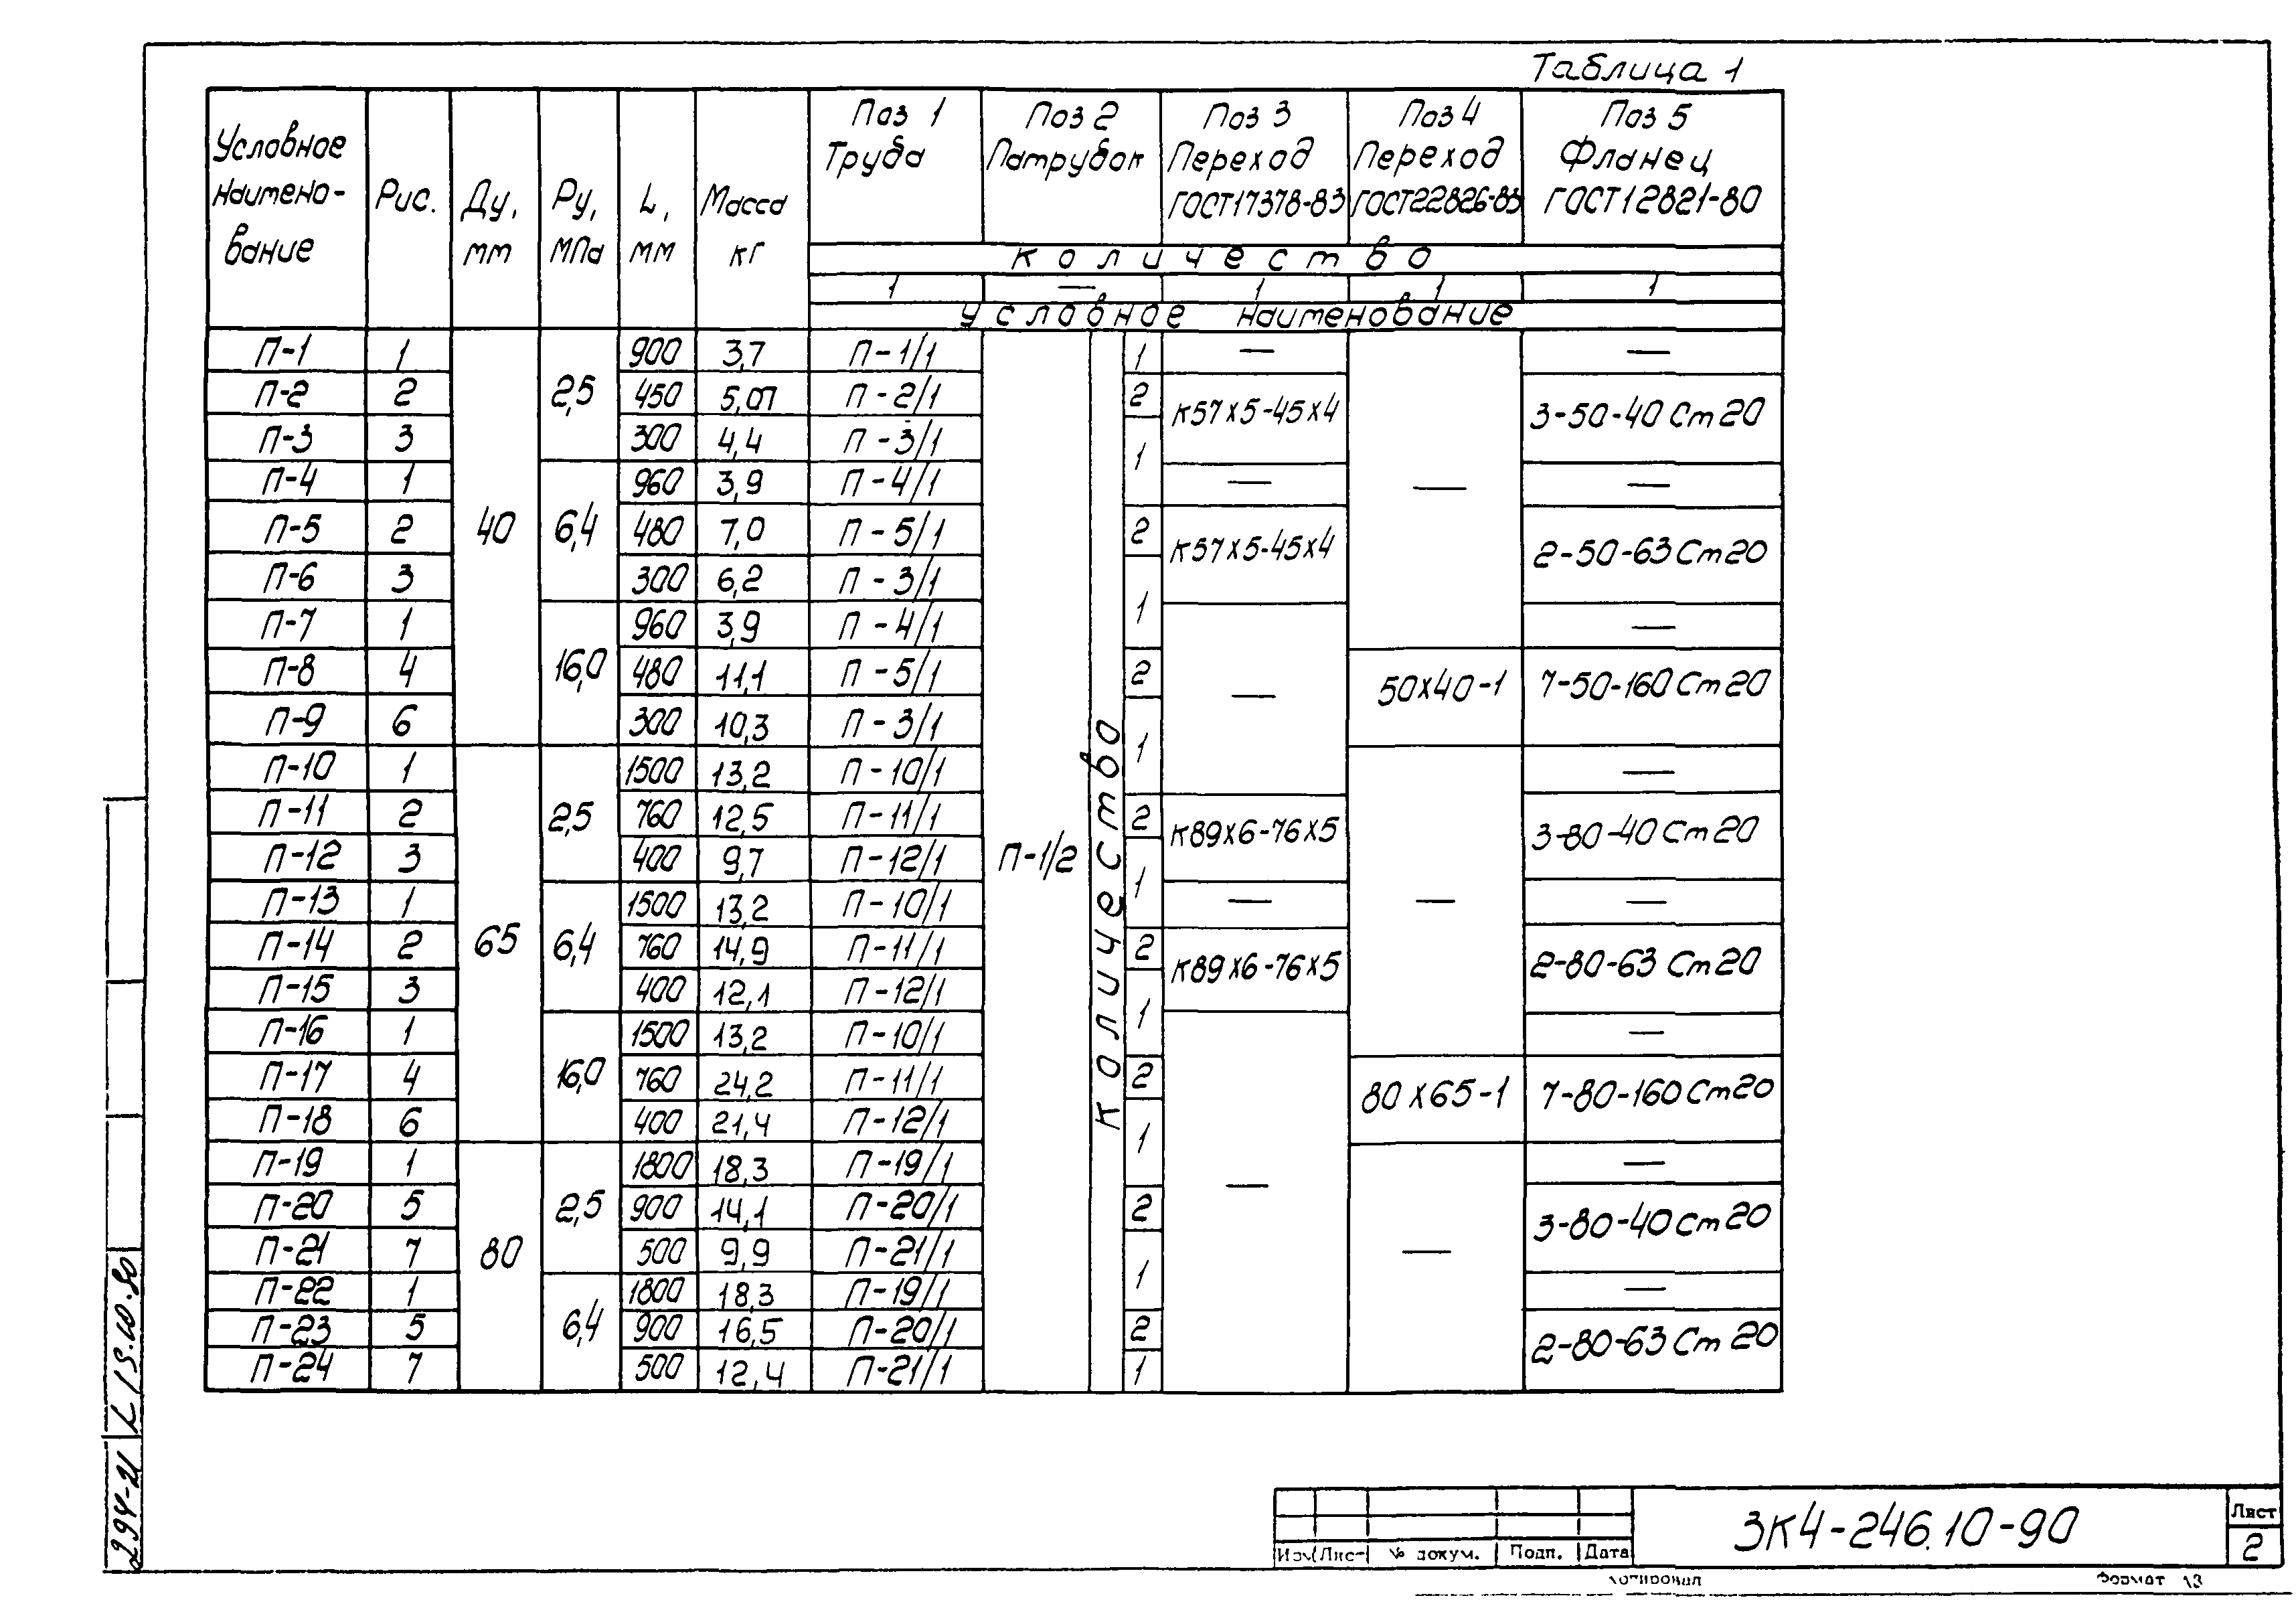 Таблица 1
Условное наимено-вание | Рис. | Ду, мм | Ру, МПа | L, мм | Масса кг | Поз 1 Труба | Поз 2 Патрубок | Поз 3 Переход ГОСТ17378-83 | Поз 4 Переход ГОСТ22826-83 | Поз 5 Фланец ГОСТ12821-80
Количество
1 | — | 1 | 1 | 1
Условное наименование
П-1 | 1 | 40 | 2,5 | 900 | 3,7 | П-1/1 | П-1/2 | Количество | 1 | — | — | —
П-2 | 2 | 450 | 5,07 | П-2/1 | 2 | К57х5-45х4 | 3-50-40 Ст20
П-3 | 3 | 300 | 4,4 | П-3/1 | 1
П-4 | 1 | 6,4 | 960 | 3,9 | П-4/1 | — | —
П-5 | 2 | 480 | 7,0 | П-5/1 | 2 | К57х5-45х4 | 2-50-63 Ст20
П-6 | 3 | 300 | 6,2 | П-3/1 | 1
П-7 | 1 | 16,0 | 960 | 3,9 | П-4/1 | — | —
П-8 | 4 | 480 | 11,1 | П-5/1 | 2 | 50х40-1 | 7-50-160 Ст20
П-9 | 6 | 300 | 10,3 | П-3/1 | 1
П-10 | 1 | 65 | 2,5 | 1500 | 13,2 | П-10/1 | — | —
П-11 | 2 | 760 | 12,5 | П-11/1 | 2 | К89х6-76х5 | 3-80-40 Ст20
П-12 | 3 | 400 | 9,7 | П-12/1 | 1
П-13 | 1 | 6,4 | 1500 | 13,2 | П-10/1 | — | —
П-14 | 2 | 760 | 14,9 | П-11/1 | 2 | К89х6-76х5 | 2-80-63 Ст20
П-15 | 3 | 400 | 12,1 | П-12/1 | 1
П-16 | 1 | 16,0 | 1500 | 13,2 | П-10/1 | — | —
П-17 | 4 | 760 | 24,2 | П-11/1 | 2 | 80х65-1 | 7-80-160 Ст20
П-18 | 6 | 400 | 21,4 | П-12/1 | 1
П-19 | 1 | 80 | 2,5 | 1800 | 18,3 | П-19/1 | — | —
П-20 | 5 | 900 | 14,1 | П-20/1 | 2 | 3-80-40 Ст20
П-21 | 7 | 500 | 9,9 | П-21/1 | 1
П-22 | 1 | 6,4 | 1800 | 18,3 | П-19/1 | —
П-23 | 5 | 900 | 16,5 | П-20/1 | 2 | 2-80-63 Ст20
П-24 | 7 | 500 | 12,4 | П-21/1 | 1
294-21
ЗК4-246.10-90
Лист
2
Изм Лист № докум. Подп. Дата
Копировал
Формат А3